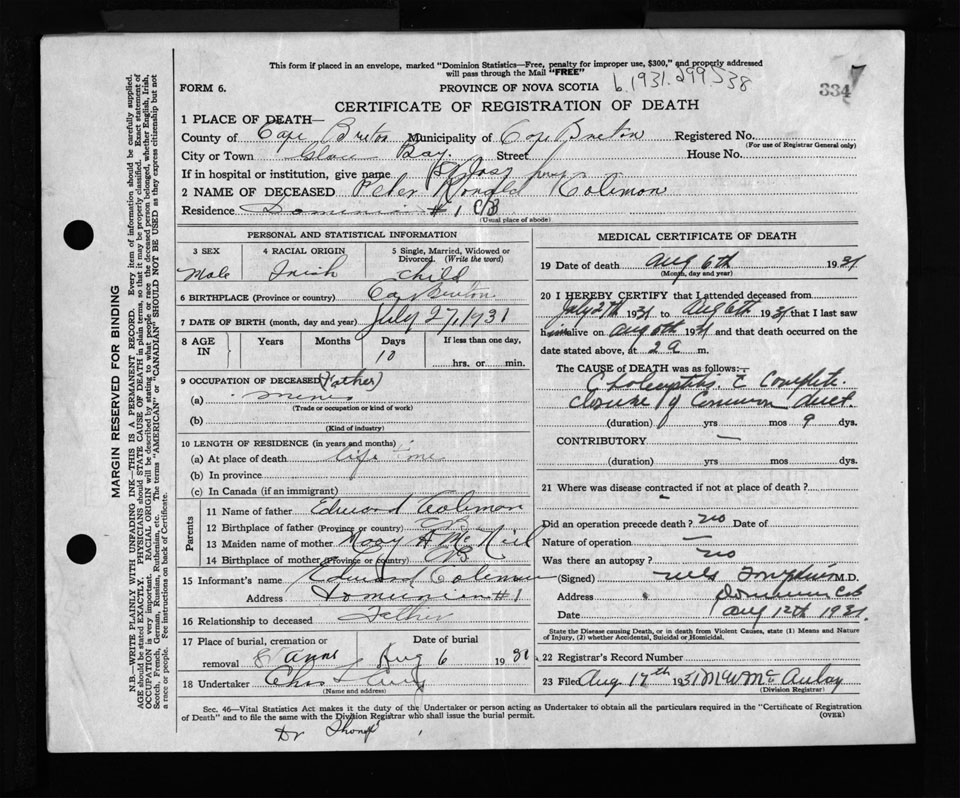 This form if placed in an envelope, marked "Dominion Statistics—Free, penalty for improper use, $300," and properly addressed
will pass through the Mail "FREE"
FORM 6.
PROVINCE OF NOVA SCOTIA
b.1931.299538
334
CERTIFICATE OF REGISTRATION OF DEATH
1 PLACE OF DEATH—
County of Cape Breton Municipality of Cape Breton Registered No.
(For use of Registrar General only)
City or Town Glace Bay. Street House No.
If in hospital or institution, give name St Jos
2 NAME OF DECEASED Peter Ronald Coleman
Residence Dominion #1 CB
(Usual place of abode)
PERSONAL AND STATISTICAL INFORMATION
3 SEX 4 RACIAL ORIGIN 5 Single, Married, Widowed or Divorced. (Write the word)
Male Irish Child
6 BIRTHPLACE (Province or country) Cape Breton
7 DATE OF BIRTH (month, day and year) July 27, 1931
8 AGE IN Years Months Days If less than one day,
10
hrs. or min.
9 OCCUPATION OF DECEASED (Father)
(a) Miner
(Trade or occupation or kind of work)
(b)
(Kind of industry)
10 LENGTH OF RESIDENCE (in years and months)
(a) At place of death life time
(b) In province
(c) In Canada (if an immigrant)
Parents
11 Name of father Edward Coleman
12 Birthplace of father (Province or country) CB
13 Maiden name of mother Mary A McNeil
14 Birthplace of mother (Province or country) CB
15 Informant's name Edward Coleman
Address Dominion #1
16 Relationship to deceased Father
17 Place of burial, cremation or removal St Anns
Date of burial Aug 6 1931
18 Undertaker Chas
(Name and address)
MEDICAL CERTIFICATE OF DEATH
19 Date of death Aug 6th 1931
(Month, day and year)
20 I HEREBY CERTIFY that I attended deceased from
July 27th 1931 to Aug 6th 1931 that I last saw
him alive on Aug 6th 1931 and that death occurred on the
date stated above, at 2 a m.
The CAUSE of DEATH was as follows:—
c Complete
closure of Common duct.
(duration) yrs mos 9 dys.
CONTRIBUTORY —
(duration) yrs mos dys.
21 Where was disease contracted if not at place of death?
Did an operation precede death? no Date of
Nature of operation —
Was there an autopsy? no
(Signed) M.D.
Address Dominion CB
Date Aug 12th 1931
State the Disease causing Death, or in death from Violent Causes, state (1) Means and Nature
of Injury, (2) whether Accidental, Suicidal or Homicidal.
22 Registrar's Record Number
23 Filed Aug 17th 1931 M W McAulay
(Division Registrar)
Sec. 46—Vital Statistics Act makes it the duty of the Undertaker or person acting as Undertaker to obtain all the particulars required in the "Certificate of Registration
of Death" and to file the same with the Division Registrar who shall issue the burial permit.
(OVER)
Dr
MARGIN RESERVED FOR BINDING
N.B.—WRITE PLAINLY WITH UNFADING INK—THIS IS A PERMANENT RECORD. Every item of information should be carefully supplied.
AGE should be stated EXACTLY. PHYSICIANS should STATE CAUSE OF DEATH in plain terms, so that it may be properly classified. Exact statement of
OCCUPATION is very important. RACIAL ORIGIN will be described by stating to what people or race the deceased person belonged, whether English, Irish,
Scotch, French, German, Russian, Ruthenian, etc. The terms "AMERICAN" or "CANADIAN" SHOULD NOT BE USED as they express citizenship but not
a race or people. See instructions on back of Certificate.